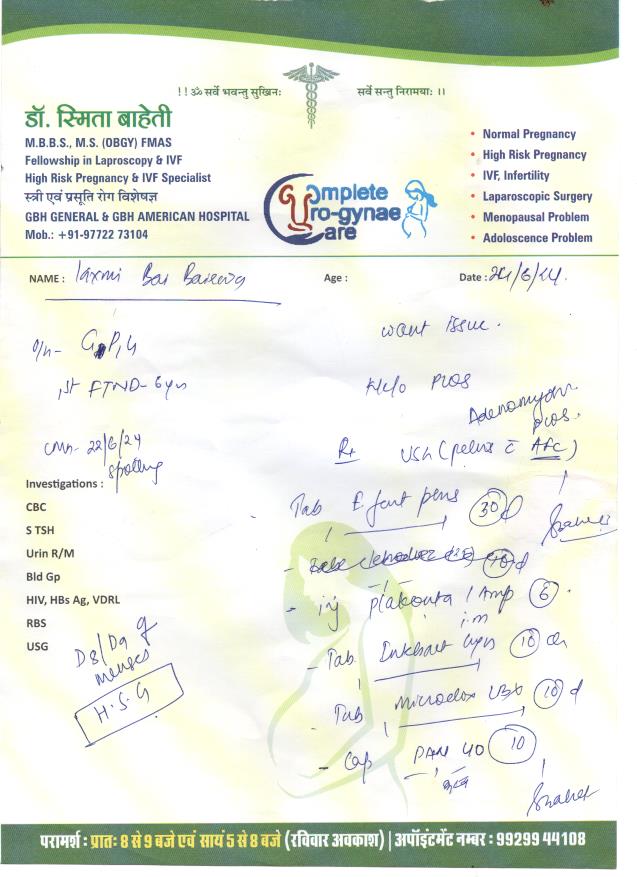 !! ॐ सर्वे भवन्तु सुखिनः सर्वे सन्तु निरामयाः ।।
डॉ. स्मिता बाहेती
M.B.B.S., M.S. (OBGY) FMAS
Fellowship in Laproscopy & IVF
High Risk Pregnancy & IVF Specialist
स्त्री एवं प्रसूति रोग विशेषज्ञ
GBH GENERAL & GBH AMERICAN HOSPITAL
Mob.: +91-97722 73104
Complete
Uro-gynae
Care
• Normal Pregnancy
• High Risk Pregnancy
• IVF, Infertility
• Laparoscopic Surgery
• Menopausal Problem
• Adoloscence Problem
NAME : Laxmi Bai Age : Date : 24/6/24.
want issue.
1st FTND- 6yrs
K/c/o PCOS
22/6/24
spotting
Rx USG (pelvis c AFC)
Investigations :
CBC
S TSH
Urin R/M
Bld Gp
HIV, HBs Ag, VDRL
RBS
USG
D8/D9 of
menses
H.S.G
Tab 30d
- inj placenta 1 Amp 6.
i.m
- Tab 10
- Tab Microdox LBX 10 d
- Cap PAN 40 10
परामर्श : प्रातः 8 से 9 बजे एवं सायं 5 से 8 बजे (रविवार अवकाश) | अपॉइंटमेंट नम्बर : 99299 44108